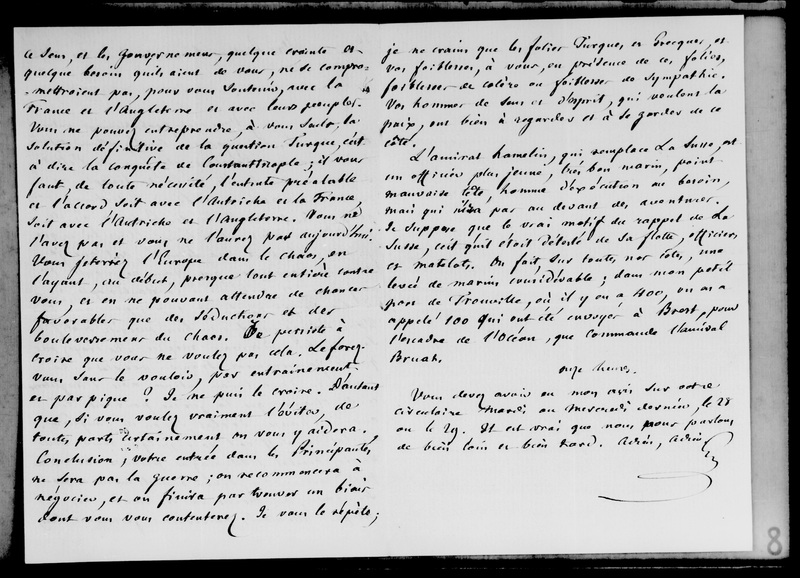 ce sens, et les gouvernemens, quelque crainte et
quelque besoin qu'ils aient de vous, ne se compro-
-mettroient pas, pour vous soutenir, avec la
France et l'Angleterre et avec leurs peuples.
Vous ne pouvez entreprendre, à vous seuls, la
solution définitive de la question Turque, c'est
à dire la conquête de Constantinople ; il vous
faut, de toute nécessité, l'entente préalable
et l'accord soit avec l'Autriche et la France,
soit avec l'Autriche et l'Angleterre. Vous ne
l'avez pas et vous ne l'aurez pas aujourd'hui.
Vous jeteriez l'Europe dans le chaos, en
l'ayant, au début, presque tout entière contre
vous, et en ne pouvant attendre de chances
favorables que des séductions et des
bouleversemens du chaos. Je persiste à
croire que vous ne voulez pas cela. Le ferez
vous sans le vouloir, par entrainement
et par pique ? Je ne puis le croire. D'autant
que, si vous voulez vraiment l'éviter, de
toutes parts certainement on vous y aidera.
Conclusion ; votre entrée dans les Principautés
ne sera pas la guerre ; on recommencera à
négocier, et on finira par trouver un biais
dont vous vous contenterez. Je vous le répète ;
je ne crains que les folies Turques et Grecques, et
vos foiblesses, à vous, en présence de ces folies,
foiblesses de colère ou foiblesses de sympathie.
Vos hommes de sens et d'esprit, qui veulent la
paix, ont bien à regarder et à se garder de ce
côté.
L'amiral hamelin, qui remplace La Susse, est
un officier plus jeune, très bon marin, point
mauvaise tête, homme d'exécution au besoin,
mais qui n'ira pas au devant des aventures.
Je suppose que le vrai motif du rappel de La
Susse, c'est qu'il étoit détesté de sa flotte, officiers
et matelots. On fait, sur toutes nos côtes, une
levée de marins considérable ; dans mon petit
port de Trouville, où il y en a 400, on en a
appelé 100 qui ont été envoyés à Brest, pour
l'escadre de l'Océan, que commande l'amiral
Bruat.
onze heures.
Vous devez avoir eu mon avis sur votre
circulaire mardi ou mercredi dernier, le 28
ou le 29. Il est vrai que nous nous parlons
de bien loin et bien tard. Adieu, adieu
8